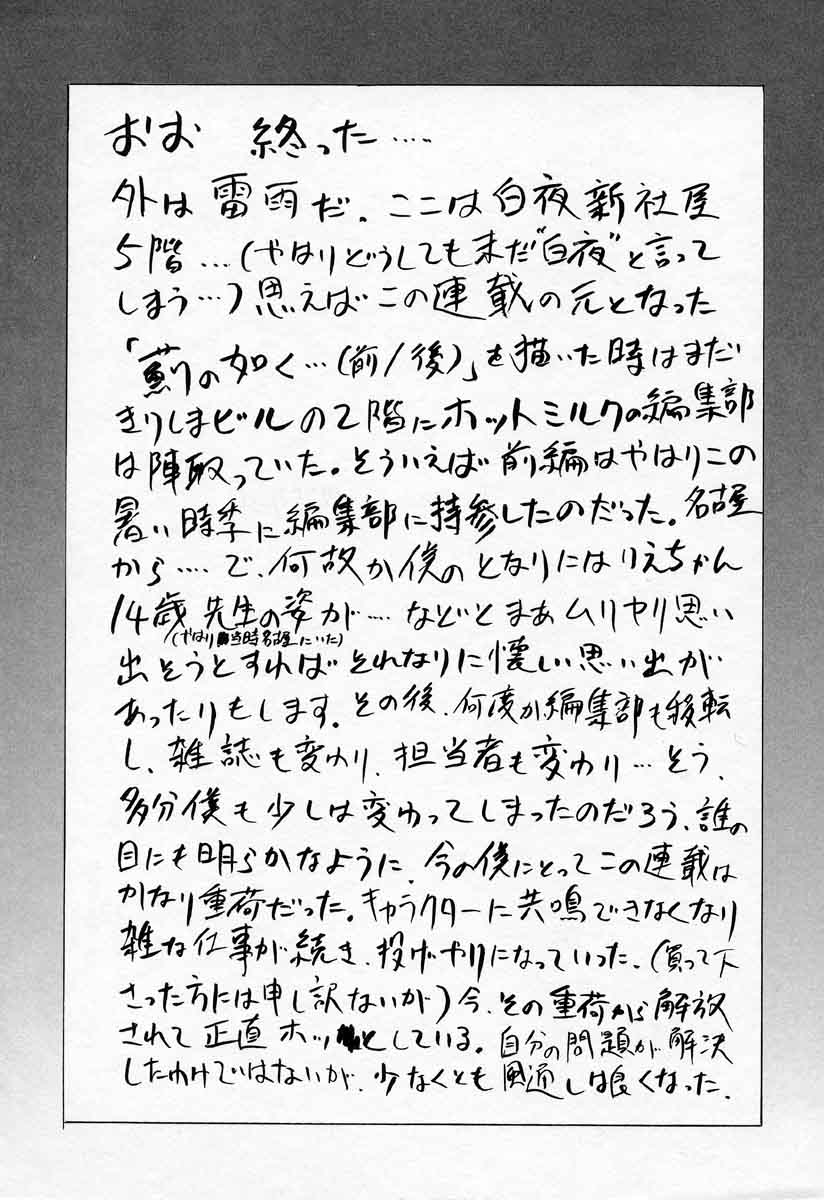 おお 終った‥‥
外は雷雨だ、ここは白夜新社屋
5階…(やはりどうしてもまだ"白夜"と言って
しまう…)思えばこの連載の元となった
「薊の如く…(前/後)」を描いた時はまだ
きりしまビルの2階にホットミルクの編集部
は陣取っていた。そういえば前編はやはりこの
暑い時季に編集部に持参したのだった。名古屋
から‥‥で、何故か僕のとなりにはりえちゃん
14歳先生の姿が…などとまあムリヤリ思い
(やはり当時名古屋にいた)
出そうとすればそれなりに懐しい思い出が
あったりもします。その後、何度か編集部も移転
し、雑誌も変わり、担当者も変わり…そう、
多分僕も少しは変わってしまったのだろう、誰の
目にも明らかなように、今の僕にとってこの連載は
かなり重荷だった。キャラクターに共鳴できなくなり
雑な仕事が続き、投げやりになっていった、(買って下
さった方には申し訳ないが)今、その重荷から解放
されて正直ホッとしている。自分の問題が解決
したわけではないが、少なくとも風通しは良くなった、